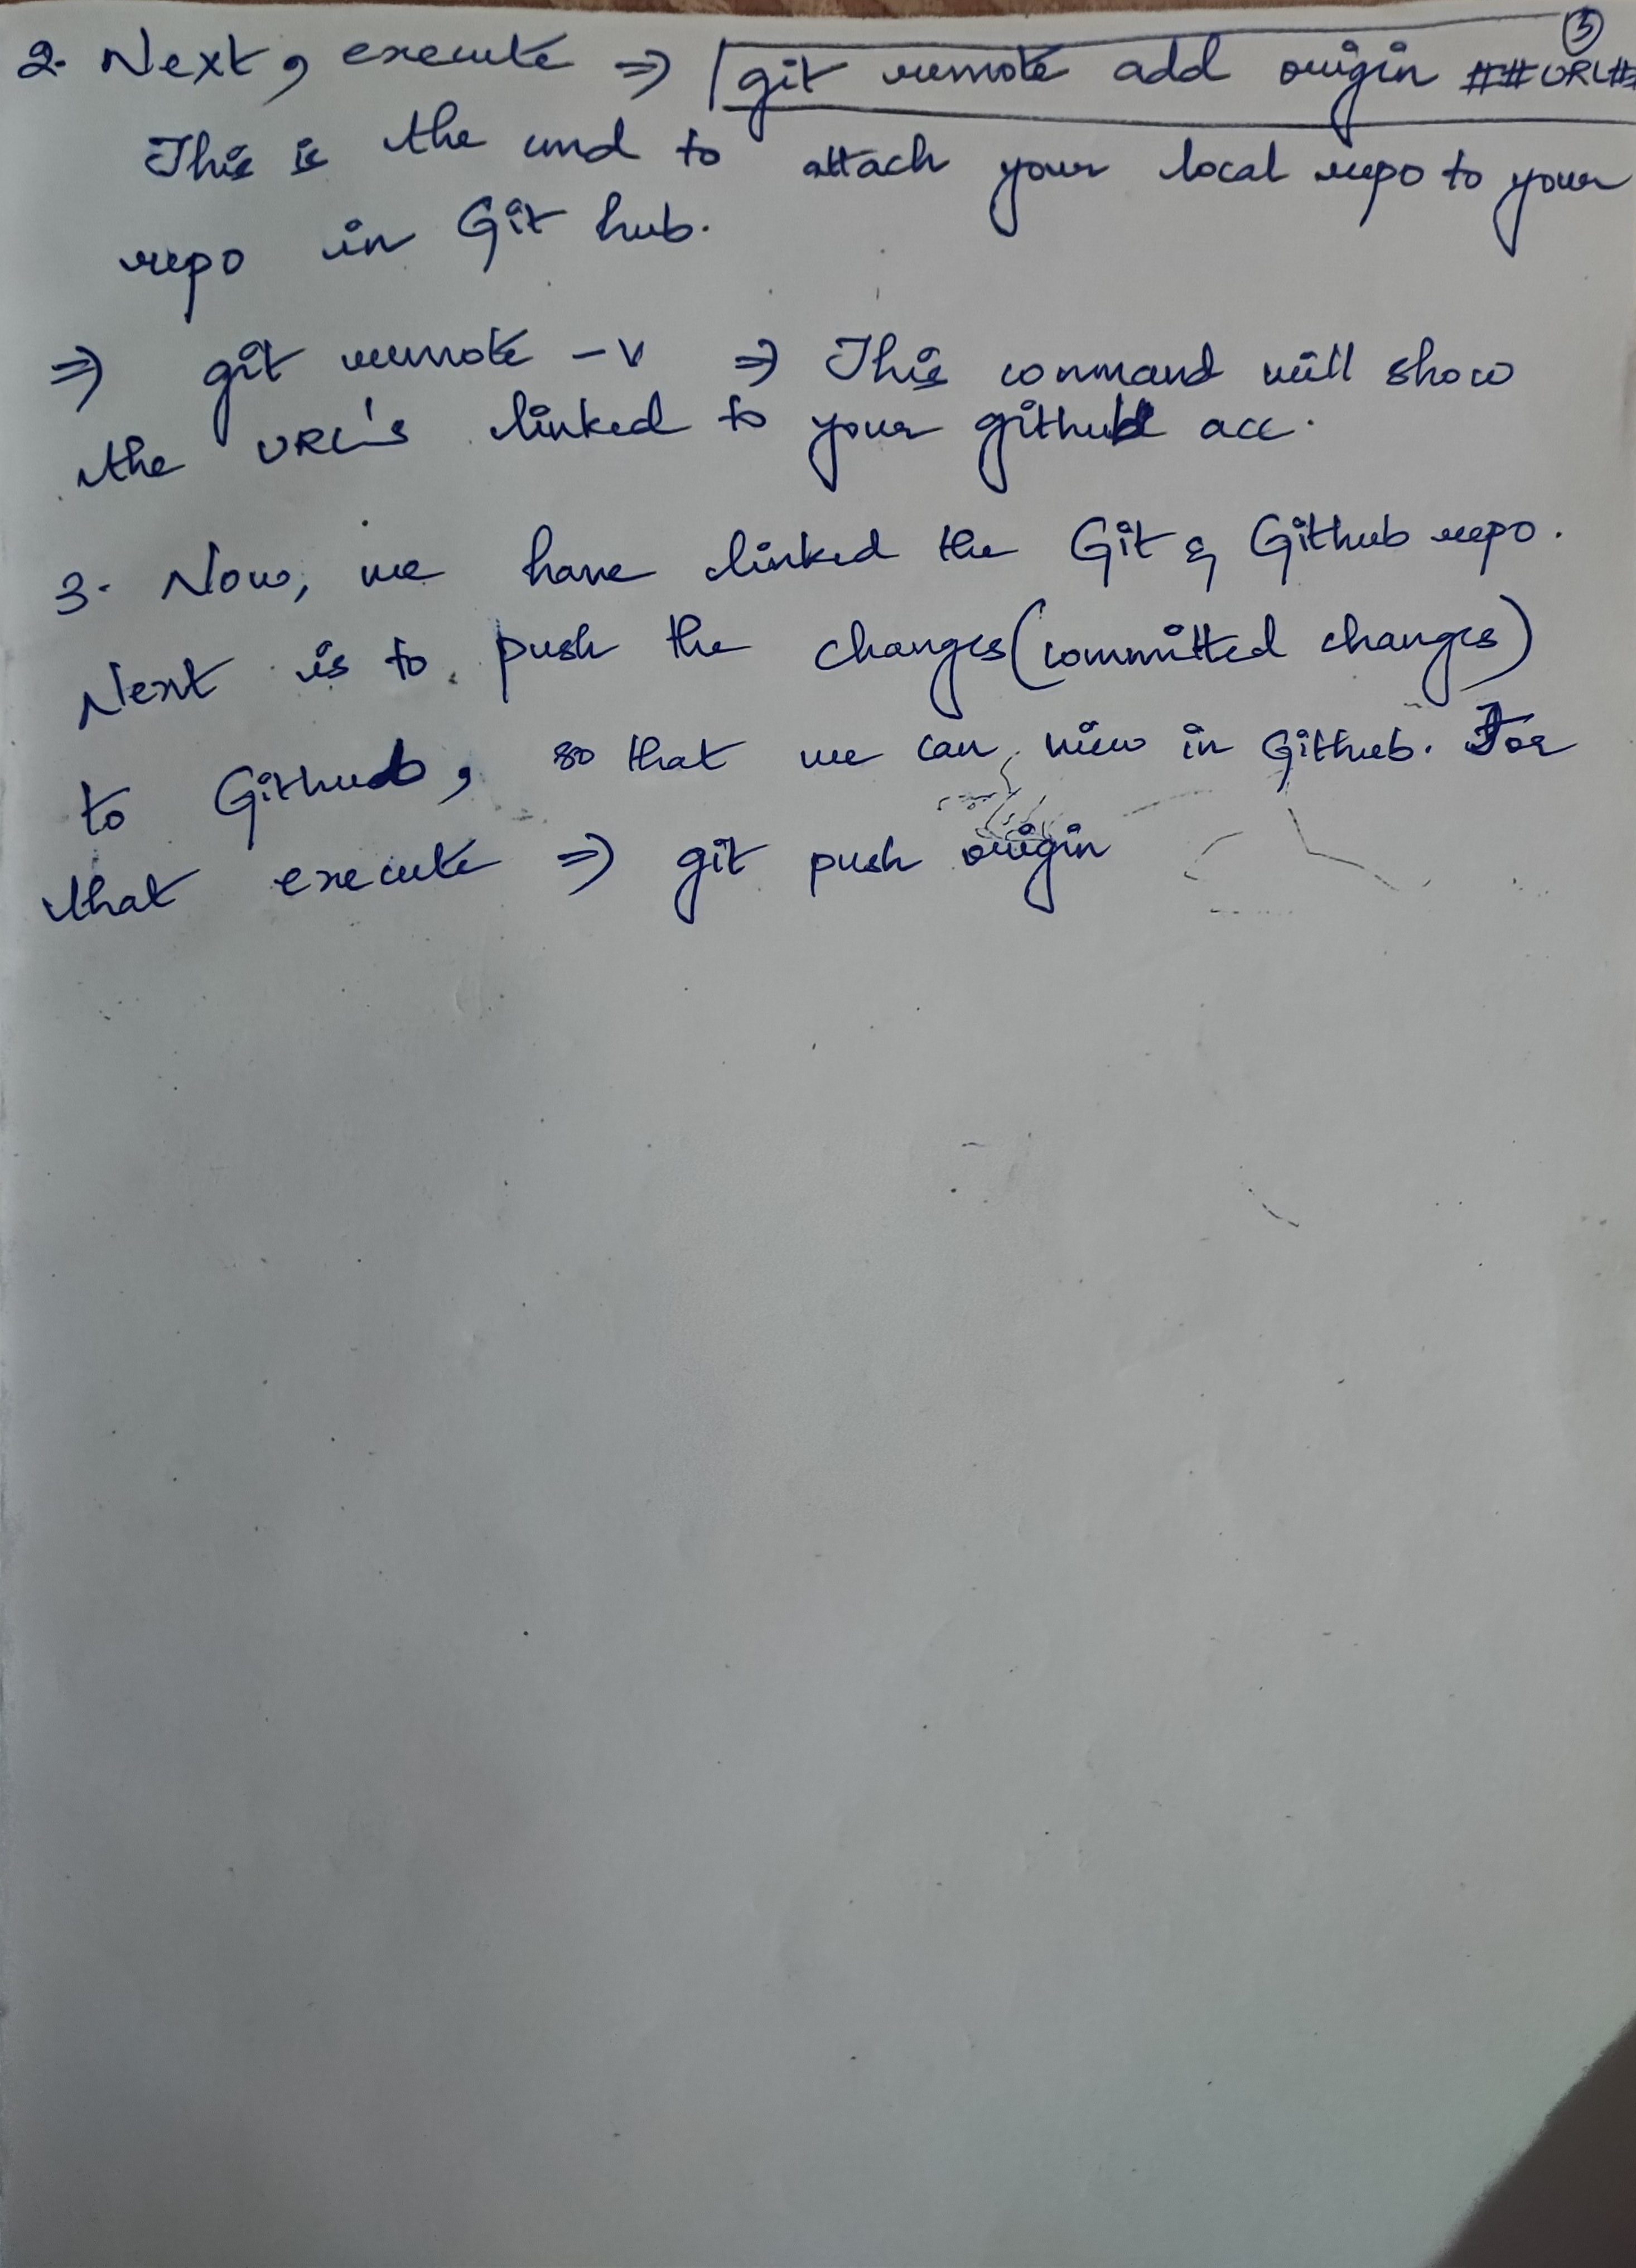 5
2. Next, execute => git remote add origin ##URL##
This is the cmd to attach your local repo to your
repo in Git hub.
=> git remote -v => This command will show
the URL's linked to your github acc.
3. Now, we have linked the Git & Github repo.
Next is to push the changes (committed changes)
to Github, so that we can view in Github. For
that execute => git push origin